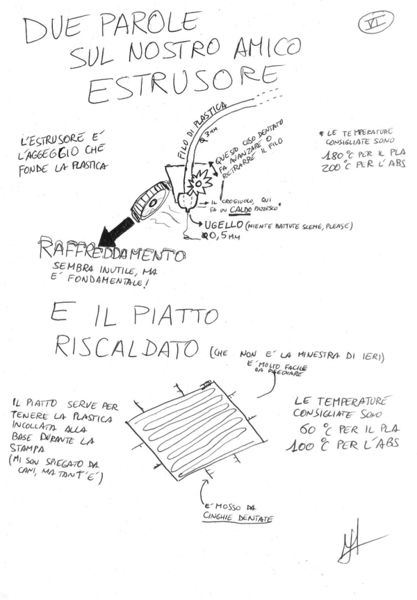 DUE PAROLE
SUL NOSTRO AMICO
ESTRUSORE
VI
L'ESTRUSORE E'
L'AGGEGGIO CHE
FONDE LA PLASTICA
FILO DI PLASTICA
Ø 3mm
QUESTO COSO DENTATO
FA AVANZARE O
RETRARRE IL FILO
* LE TEMPERATURE
CONSIGLIATE SONO
180°C PER IL PLA
200°C PER L'ABS
IL CROGIUOLO, QUI
FA UN CALDO PAZZESCO*
UGELLO (NIENTE BATTUTE SCEME, PLEASE)
Ø 0,5 MM
RAFFREDDAMENTO
SEMBRA INUTILE, MA
E' FONDAMENTALE!
E IL PIATTO
RISCALDATO (CHE NON E' LA MINESTRA DI IERI)
E' MOLTO FACILE
IL PIATTO SERVE PER
TENERE LA PLASTICA
INCOLLATA ALLA
BASE DURANTE LA
STAMPA
(MI SON SPIEGATO DA
CANI, MA TANT'E')
LE TEMPERATURE
CONSIGLIATE SONO
60°C PER IL PLA
100°C PER L'ABS
E' MOSSO DA
CINGHIE DENTATE